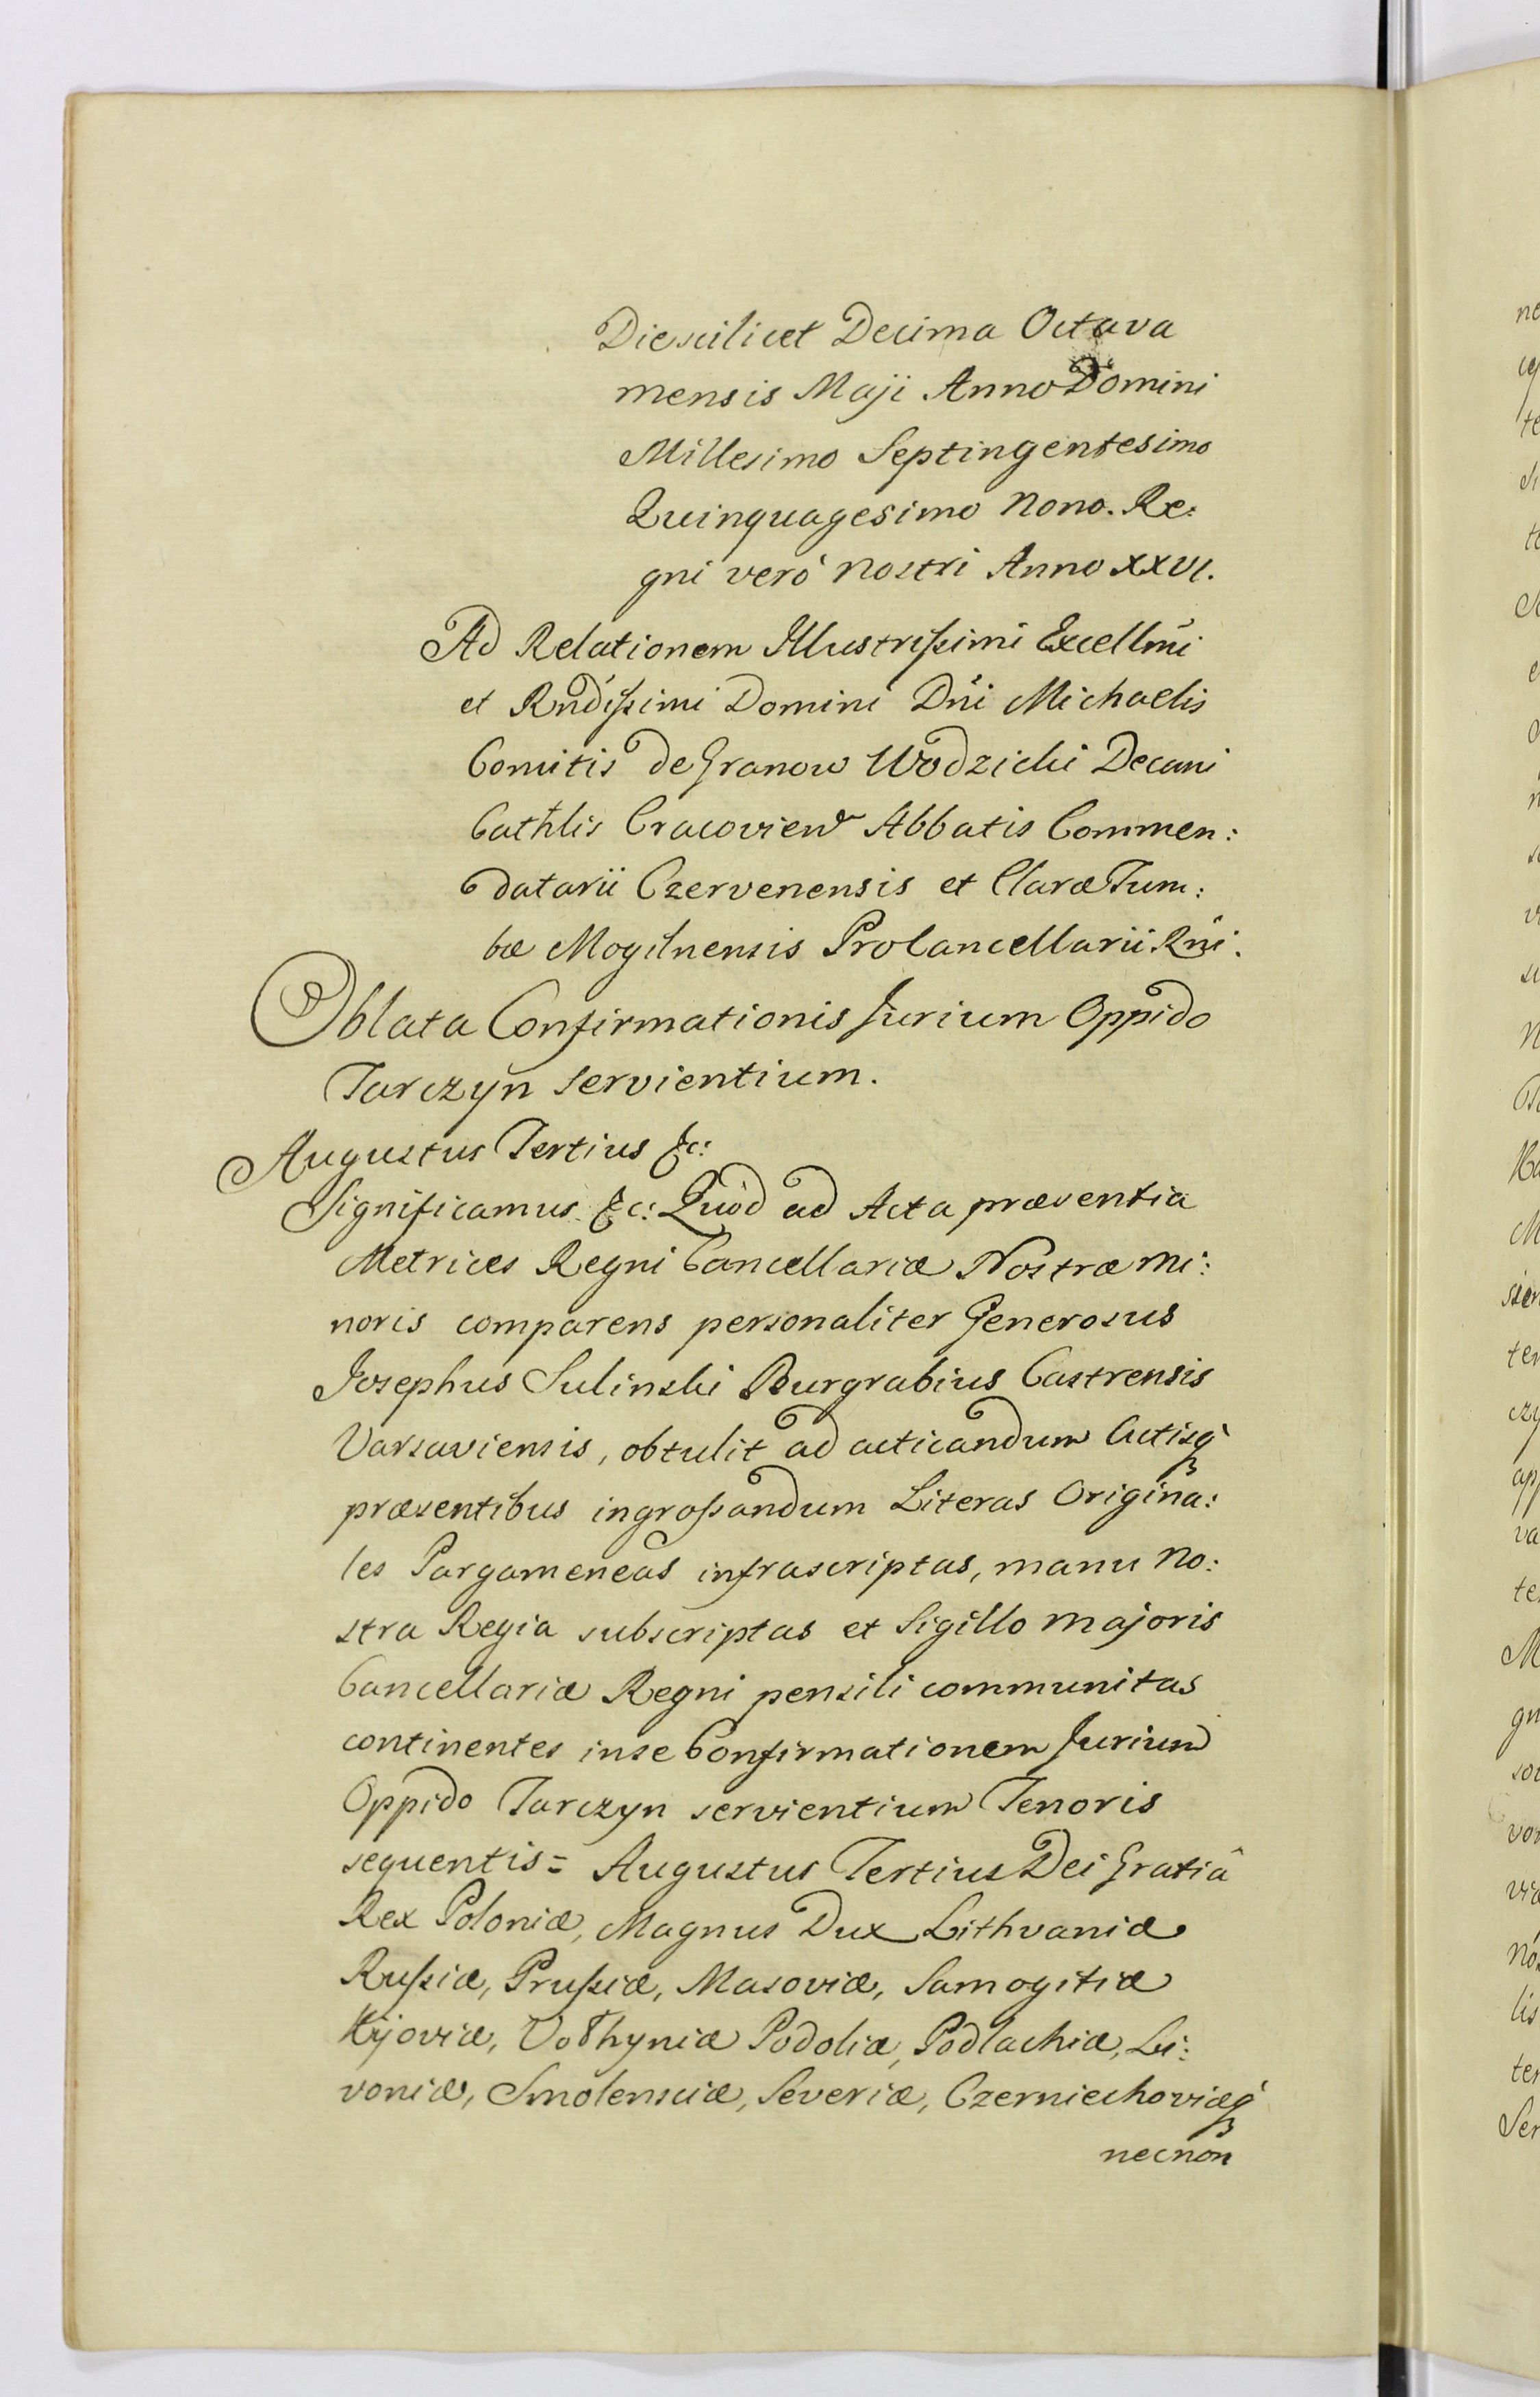 Die scilicet Decima Octava
mensis Maji Anno Domini
Millesimo Septingentesimo
Quinquagesimo Nono. Re:
gni verò Nostri Anno XXVI.
Ad Relationem Illustrißimi Excellmi
et Rndißimi Domini Dni Michaelis
Comitis de Granow Wodzicki Decani
Cathlis Cracovien Abbatis Commen:
datarii Czervenensis et Claræ Tum:
bæ Mogilnensis ProCancellarii Rni.
Oblata Confirmationis Jurium Oppido
Tarczyn servientium.
Augustus Tertius &c:
Significamus &c: Quòd ad Acta præsentia
Metrices Regni Cancellariæ Nostræ Mi:
noris comparens personaliter Generosus
Josephus Sulinski Burgrabius Castrensis
Varsaviensis, obtulit ad acticandum Actisq
præsentibus ingroßandum Literas Origina:
les Pargameneas infrascriptas, manu No:
stra Regia subscriptas et Sigillo Majoris
Cancellariæ Regni pensili communitas
continentes in se Confirmationem Jurium
Oppido Tarczyn servientium Tenoris
sequentis = Augustus Tertius Dei Gratiâ
Rex Poloniæ, Magnus Dux Lithvaniæ
Rußiæ, Prußiæ, Masoviæ, Samogitiæ
Kijoviæ, Volhyniæ Podoliæ, Podlachiæ, Li:
voniæ, Smolensciæ, Severiæ, Czerniechoviæq
necnon